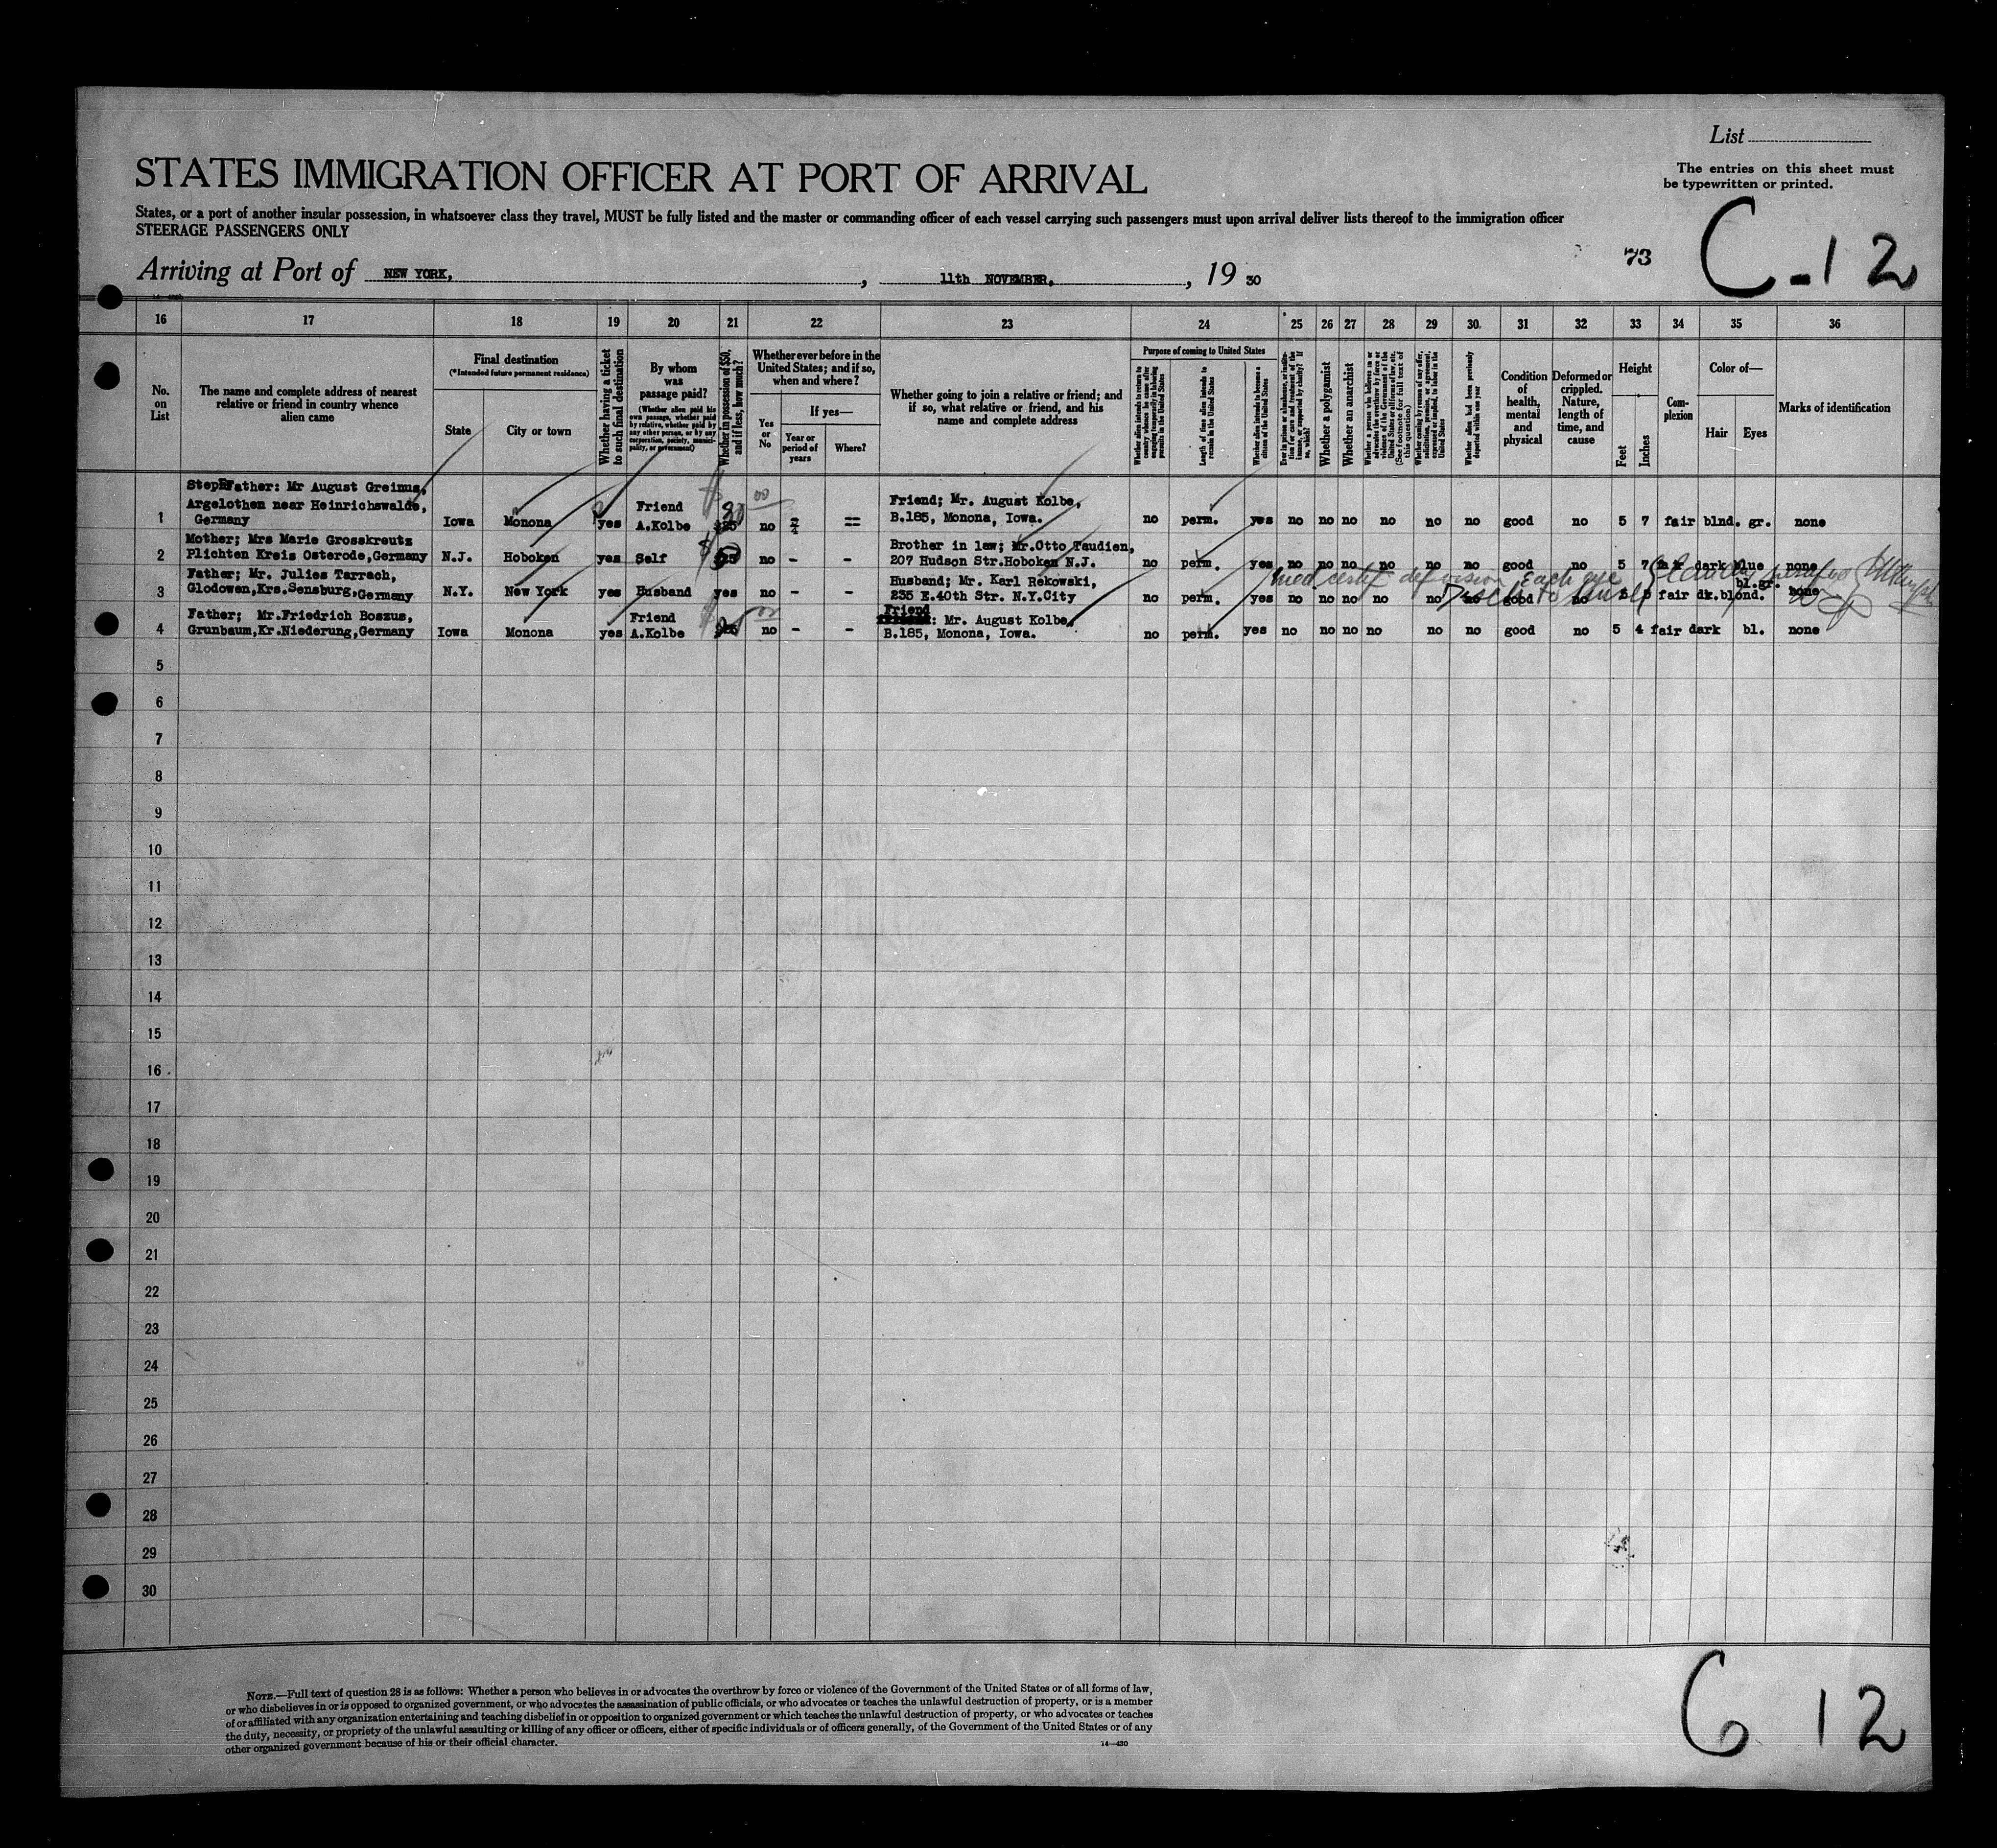 List
STATES IMMIGRATION OFFICER AT PORT OF ARRIVAL
The entries on this sheet must
be typewritten or printed.
States, or a port of another insular possession, in whatsoever class they travel, MUST be fully listed and the master or commanding officer of each vessel carrying such passengers must upon arrival deliver lists thereof to the immigration officer
STEERAGE PASSENGERS ONLY
C-12
73
Arriving at Port of NEW YORK, , 11th NOVEMBER, , 19 30
16 17 18 19 20 21 22 23 24 25 26 27 28 29 30 31 32 33 34 35 36
No. on List
The name and complete address of nearest
relative or friend in country whence
alien came
Final destination
(*Intended future permanent residence)
State
City or town
Whether having a ticket
to such final destination
By whom
was
passage paid?
(Whether alien paid his
own passage, whether paid
by relative, whether paid by
any other person, or by any
corporation, society, munici-
pality, or government)
Whether in possession of $50,
and if less, how much?
Whether ever before in the
United States; and if so,
when and where?
Yes or No
If yes—
Year or
period of
years
Where?
Whether going to join a relative or friend; and
if so, what relative or friend, and his
name and complete address
Purpose of coming to United States
Length of time alien intends to
remain in the United States
Whether alien intends to become a
citizen of the United States
Whether a polygamist
Whether an anarchist
Whether alien had been previously
deported within one year
Condition
of
health,
mental
and
physical
Deformed or
crippled.
Nature,
length of
time, and
cause
Height
Feet
Inches
Com-
plexion
Color of—
Hair
Eyes
Marks of identification
Father: Mr August Greinus,
Argelothen near Heinrichswalde,
Germany
1 Iowa Monona yes Friend A.Kolbe 30 no
Friend; Mr. August Kolbe,
B.185, Monona, Iowa.
no perm. yes no no no no no no good no 5 7 fair blnd. gr. none
Mother; Mrs Marie Grosskreutz
2 Plichten Kreis Osterode,Germany N.J. Hoboken yes Self no - -
Brother in law; Mr.Otto Taudien,
207 Hudson Str.Hoboken N.J.
no perm. yes no no no no no no good no 5 7 fair dark blue none
Father; Mr. Julies Tarrach,
3 Glodowen,Krs.Sensburg,Germany N.Y. New York yes Husband yes no - -
Husband; Mr. Karl Rekowski,
235 E.40th Str. N.Y.City
no perm. yes no no no no no no good no fair dk.blond. bl.gr. none
med certif def vision each eye
Father; Mr.Friedrich Boszus,
4 Grunbaum,Kr.Niederung,Germany Iowa Monona yes Friend A.Kolbe no - -
Friend : Mr. August Kolbe,
B.185, Monona, Iowa.
no perm. yes no no no no no no good no 5 4 fair dark bl. none
5
6
7
8
9
10
11
12
13
14
15
16
17
18
19
20
21
22
23
24
25
26
27
28
29
30
NOTE.—Full text of question 28 is as follows: Whether a person who believes in or advocates the overthrow by force or violence of the Government of the United States or of all forms of law,
or who disbelieves in or is opposed to organized government, or who advocates the assassination of public officials, or who advocates or teaches the unlawful destruction of property, or is a member
of or affiliated with any organization entertaining and teaching disbelief in or opposition to organized government or which teaches the unlawful destruction of property, or who advocates or teaches
the duty, necessity, or propriety of the unlawful assaulting or killing of any officer or officers, either of specific individuals or of officers generally, of the Government of the United States or of any
other organized government because of his or their official character.
14—430
C 12